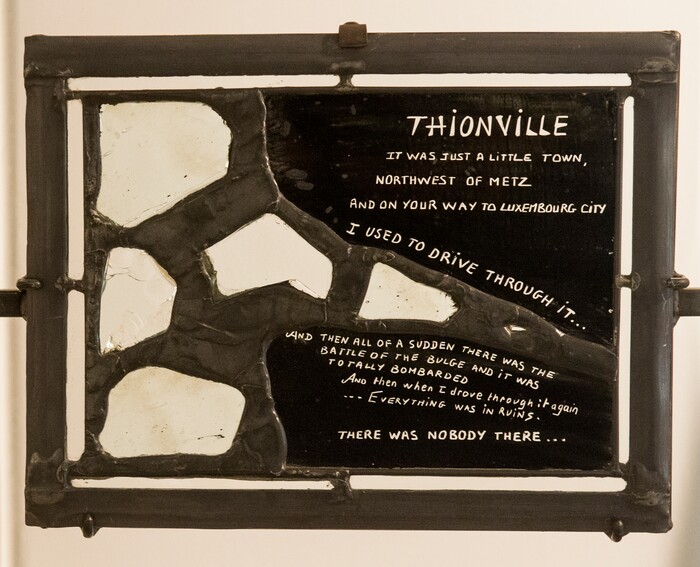 THIONVILLE
IT WAS JUST A LITTLE TOWN,
NORTHWEST OF METZ
AND ON YOUR WAY TO LUXEMBOURG CITY
I USED TO DRIVE THROUGH IT...
AND THEN ALL OF A SUDDEN THERE WAS THE
BATTLE OF THE BULGE AND IT WAS
TOTALLY BOMBARDED
And then when I drove through it again
--- EVERYTHING WAS IN RUINS.
THERE WAS NOBODY THERE...